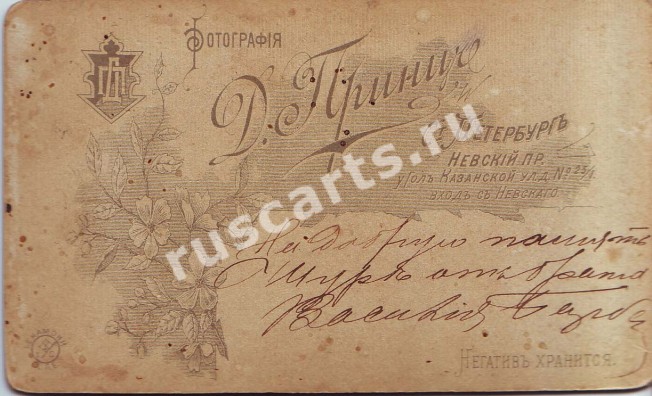 Фотографія
Д. Принцъ
С. Петербургъ
Невскій пр.
уголъ Казанской ул. д. № 23/1
входъ съ Невскаго
На добрую память
Шурѣ отъ брата
Василія
Негативъ хранится.
ruscarts.ru